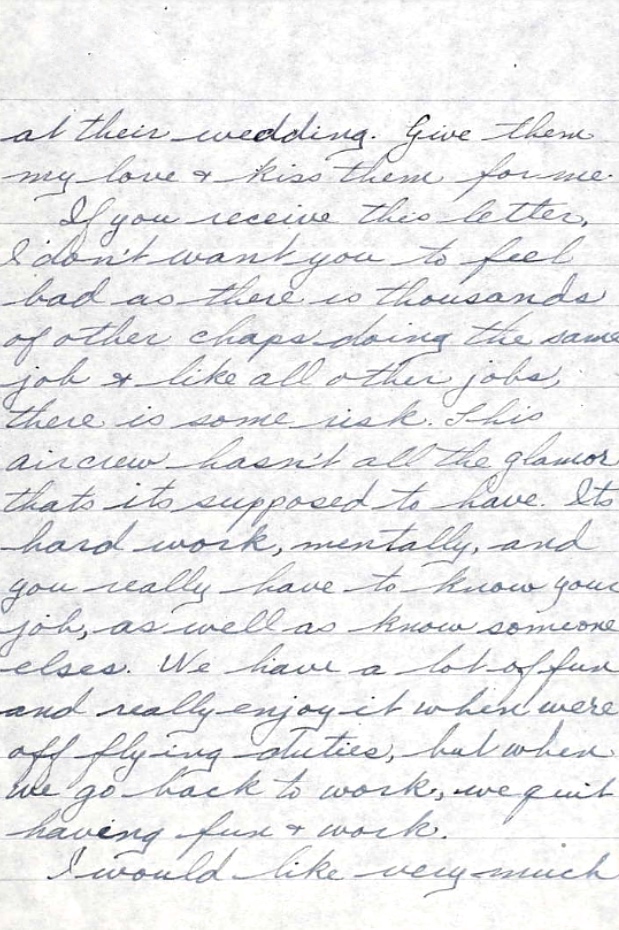 at their wedding. Give them
my love & kiss them for me.
If you receive this letter,
I don't want you to feel
bad as there is thousands
of other chaps doing the same
job & like all other jobs,
there is some risk. This
aircrew hasn't all the glamor
thats its supposed to have. Its
hard work, mentally, and
you really have to know your
job, as well as know someone
elses. We have a lot of fun
and really enjoy it when were
off flying duties, but when
we go back to work, we quit
having fun & work.
I would like very much